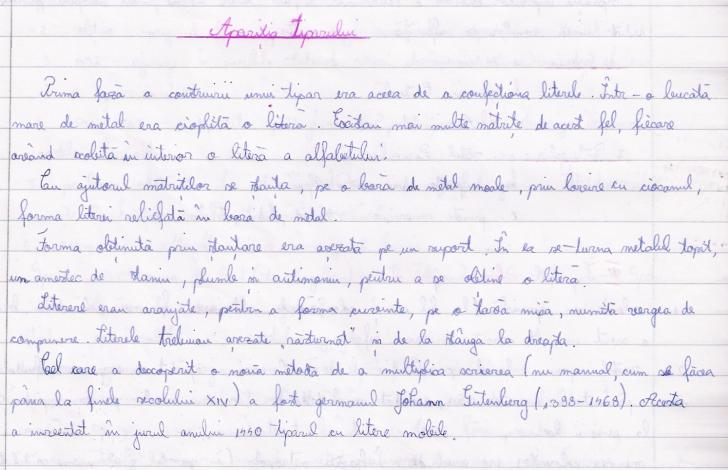 Apariția tiparului
Prima fază a construirii unui tipar era aceea de a confecționa literele. Într-o bucată
mare de metal era cioplită o literă. Existau mai multe mătrițe de acest fel, fiecare
având scobită în interior o literă a alfabetului.
Cu ajutorul matrițelor se ștanța, pe o bară de metal moale, prin lovire cu ciocanul,
forma literei reliefată în bara de metal.
Forma obținută prin ștanțare era așezată pe un suport. În ea se-turna metalul topit,
un amestec de staniu, plumb și antimoniu, pentru a se obține o literă.
Literere erau aranjate, pentru a forma cuvinte, pe o țară mică, numită vergea de
compunere. Literele trebuiau așezate „răsturnat" și de la stânga la dreapta.
Cel care a descoperit o nouă metodă de a multiplica scrierea (nu manual, cum se făcea
până la finele secolului XIV) a fost germanul Johann Gutenberg (1398-1468). Acesta
a inventat în jurul anului 1440 tiparul cu litere mobile.